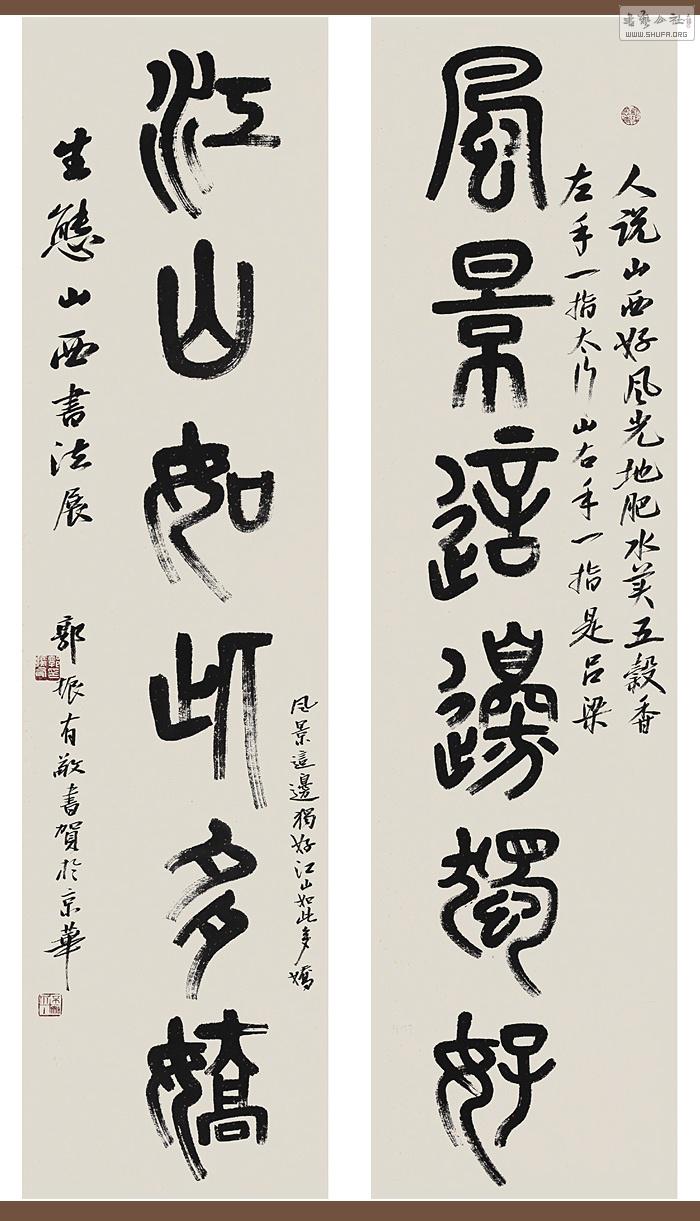 風景這邊獨好
人说山西好风光地肥水美五穀香
左手一指太行山右手一指是吕梁
江山如此多嬌
风景這邊獨好江山如此多嬌
生態山西書法展
郭振有敬書賀於京華
書藝公社
WWW.SHUFA.ORG